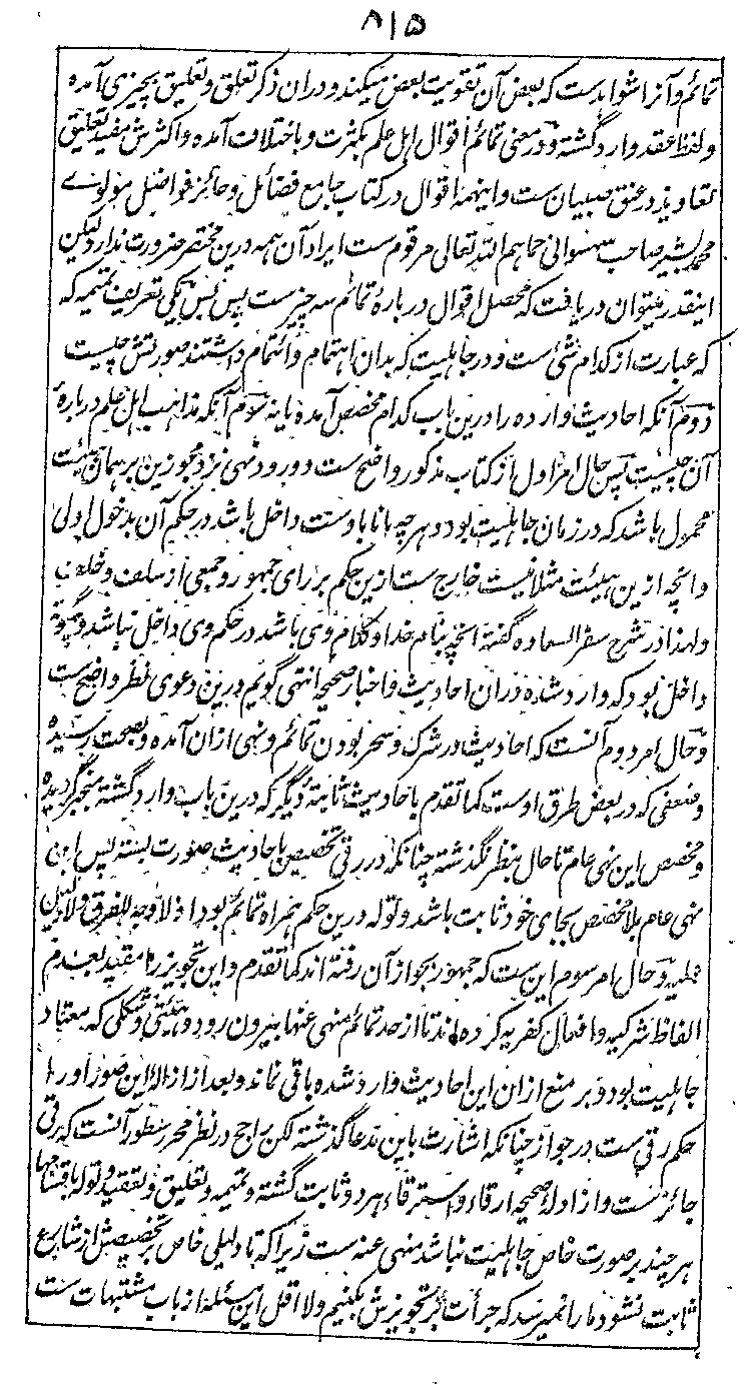 ۸۱۵
تمائم و آنرا شواہدست کہ بعض آن تقویت بعض میکند و دران ذکر تعلق و تعلیق بچیزی آمدہ
و لفظ عقد وارد گشتہ و در معنی تمائم اقوال اہل علم بکثرت و باختلاف آمدہ و اکثرش مفید تعلیق
تعاویذ در عنق صبیان ست و اینہمہ اقوال در کتاب جامع فضائل و حائز فواضل مولوے
محمد بشیر صاحب سہسوانی حماہم اللہ تعالی مرقوم ست ایراد آن ہمہ درین مختصر ضرورت ندارد لیکن
اینقدر میتوان دریافت کہ محصل اقوال دربارۂ تمائم سہ چیز ست پس یکی تعریف تمیمہ کہ
کہ عبارت از کدام شئ ست و در جاہلیت کہ بدان اہتمام و ائتمام داشتند صورتش چیست
دوم آنکہ احادیث واردہ را درین باب کدام مخصص آمدہ یا نہ سوم آنکہ مذاہب اہل علم دربارۂ
آن چیست پس حال امر اول از کتاب مذکور واضح ست و ورود نہی نزد مجوزین بر ہمان ہیئت
محمول باشد کہ در زمان جاہلیت بود و ہرچہ مانا باوست داخل باشد در حکم آن بدخول اولی
و انچہ ازین ہیئت مثلا نیست خارج ست ازین حکم بر رای جمہور و جمعی از سلف و خلف
و لہذا در شرح سفر السعادہ گفتہ انچہ بنام خدا و کلام وی باشد در حکم وی داخل نباشد و چگونہ
داخل بود کہ وارد شدہ دران احادیث و اخبار صحیحہ انتہی گویم درین دعوی نظر واضح ست
و حال امر دوم آنست کہ احادیث در شرک و سحر بودن تمائم و نہی ازان آمدہ و بصحت رسیدہ
و ضعفی کہ در بعض طرق اوست کما تقدم باحادیث ثابتۂ دیگر کہ درین باب وارد گشتہ منجبر گردیدہ
و مخصص این نہی عام تا حال بنظر نگذشتہ چنانکہ در رقی تخصیص باحادیث صورت بستہ پس این
نہی عام بلا مخصص بجای خود ثابت باشد و تولہ درین حکم ہمراہ تمائم بود اذ لا وجہ للفرق ولا دلیل
علیہ و حال امر سوم این ست کہ جمہور بجواز آن رفتہ اند کما تقدم و این تجویز را مقید بعدم
الفاظ شرکیہ و افعال کفریہ کردہ اند تا از حد تمائم منہی عنہا بیرون رود و ہیئتی و شکلی کہ معتاد
جاہلیت بود و بر منع ازان این احادیث وارد شدہ باقی نماند و بعد از ازالۂ این صور او را
حکم رقی ست در جواز چنانکہ اشارت باین مدعا گذشتہ لکن راجح در نظر محرر سطور آنست کہ رقی
جائز ست و از ادلۂ صحیحہ ارقاء و استرقاء ہر دو ثابت گشتہ و تمیمہ و تعلیق و تعقید و تولہ باقسامہا
ہرچند بر صورت خاص جاہلیت نباشد منہی عنہ ست زیراکہ تا دلیلی خاص بر تخصیصش از شارع
ثابت نشود ما را نمیرسد کہ جرأت بر تجویزش بکنیم و لا اقل این مسئلہ از باب مشتبہات ست